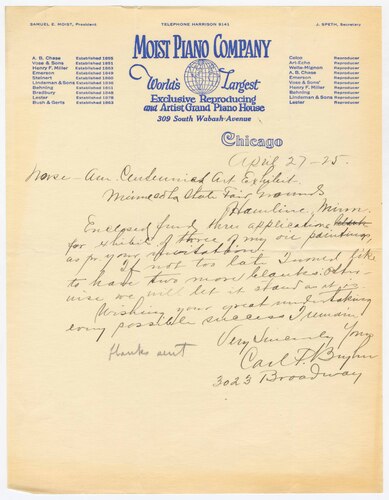 SAMUEL E. MOIST, President
TELEPHONE HARRISON 8141
J. SPETH, Secretary
MOIST PIANO COMPANY
World's Largest
Exclusive Reproducing
and Artist Grand Piano House
309 South Wabash Avenue
Chicago
A. B. Chase Established 1855
Vose & Sons Established 1851
Henry F. Miller Established 1863
Emerson Established 1849
Steinert Established
Lindeman & Sons Established
Behning Established 1861
Bradbury Established
Lester Established
Bush & Gerts Established
Celco Reproducer
Art-Echo Reproducer
Welte-Mignon Reproducer
A. B. Chase Reproducer
Emerson Reproducer
Vose & Sons Reproducer
Henry F. Miller Reproducer
Behning Reproducer
Lindeman & Sons Reproducer
Lester Reproducer
April 27-25.
Norse-Am. Centennial Art Exhibit.
Minnesota State Fair grounds
Hamline, Minn.
Enclosed find three application blank
for exhibit of three of my oil paintings,
as per your invitation.
If not too late I would like
to have two more blanks. Other
wise we will let it stand as it is.
Wishing your great undertaking
every possible success I remain
Very Sincerely Yours
Carl F.
3023 Broadway
blanks sent